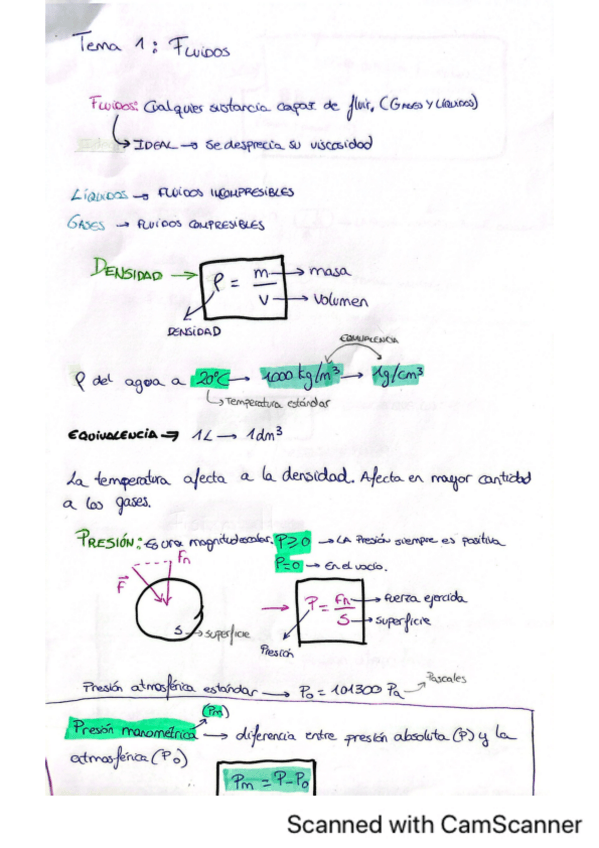 Tema 1: Fluidos
Fluidos: Cualquier sustancia capaz de fluir, (Gases y líquidos)
→ IDEAL → se desprecia su viscosidad
LÍQUIDOS → FLUIDOS INCOMPRESIBLES
GASES → FLUIDOS COMPRESIBLES
DENSIDAD → ρ = m/V
m → masa
V → Volumen
DENSIDAD
EQUIVALENCIA
ρ del agua a 20°C → 1000 kg/m³ → 1g/cm³
→ Temperatura estándar
EQUIVALENCIA → 1L → 1dm³
La temperatura afecta a la densidad. Afecta en mayor cantidad
a los gases.
PRESIÓN: Es una magnitud escalar. P≥0 → LA Presión siempre es positiva
P=0 → En el vacío.
Fn
F
S → superficie
→ P = Fn/S
Fn → fuerza ejercida
S → superficie
Presión
Presión atmosférica estándar → P₀ = 101300 Pa → Pascales
(Pm)
Presión manométrica → diferencia entre presión absoluta (P) y la
atmosférica (P₀)
Pm = P-P₀
Scanned with CamScanner